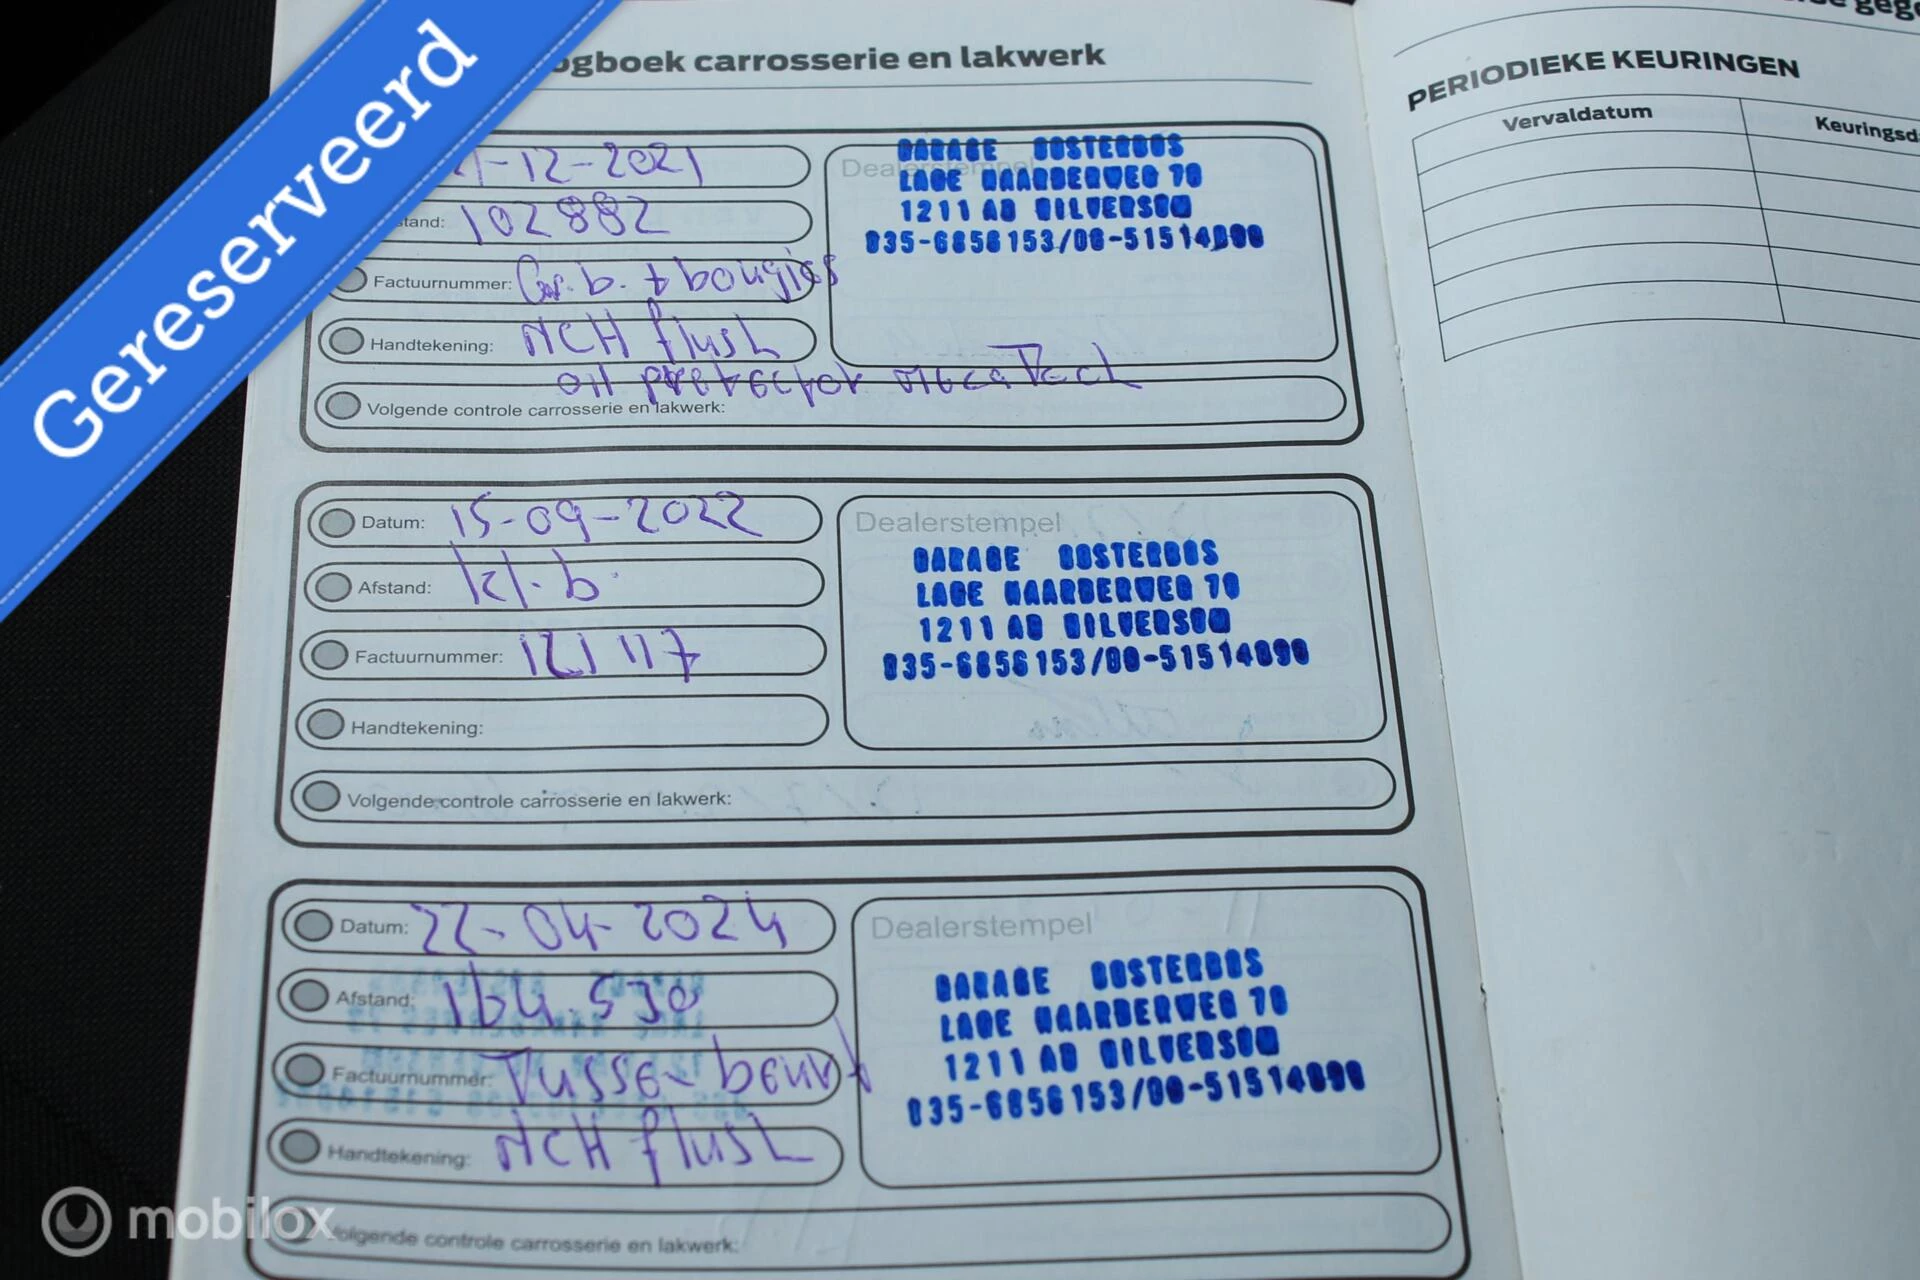 Gereserveerd
ogboek carrosserie en lakwerk
1-12-2021
stand: 102882
Factuurnummer: Gr.b. + bougies
Handtekening: NCH flush
oil protector mecaTech
Volgende controle carrosserie en lakwerk:
Dealerstempel
GARAGE OOSTERBOS
LAGE NAARDERWEG 70
1211 AD HILVERSUM
035-6856153/06-51514090
Datum: 15-09-2022
Afstand: kl.b.
Factuurnummer: 121117
Handtekening:
Volgende controle carrosserie en lakwerk:
Dealerstempel
GARAGE OOSTERBOS
LAGE NAARDERWEG 70
1211 AD HILVERSUM
035-6856153/06-51514090
Datum: 22-04-2024
Afstand:
Factuurnummer: Tusse-beurt
Handtekening: NCH flush
Volgende controle carrosserie en lakwerk:
Dealerstempel
GARAGE OOSTERBOS
LAGE NAARDERWEG 70
1211 AD HILVERSUM
035-6856153/06-51514090
PERIODIEKE KEURINGEN
Vervaldatum
Keuringsd
mobilox